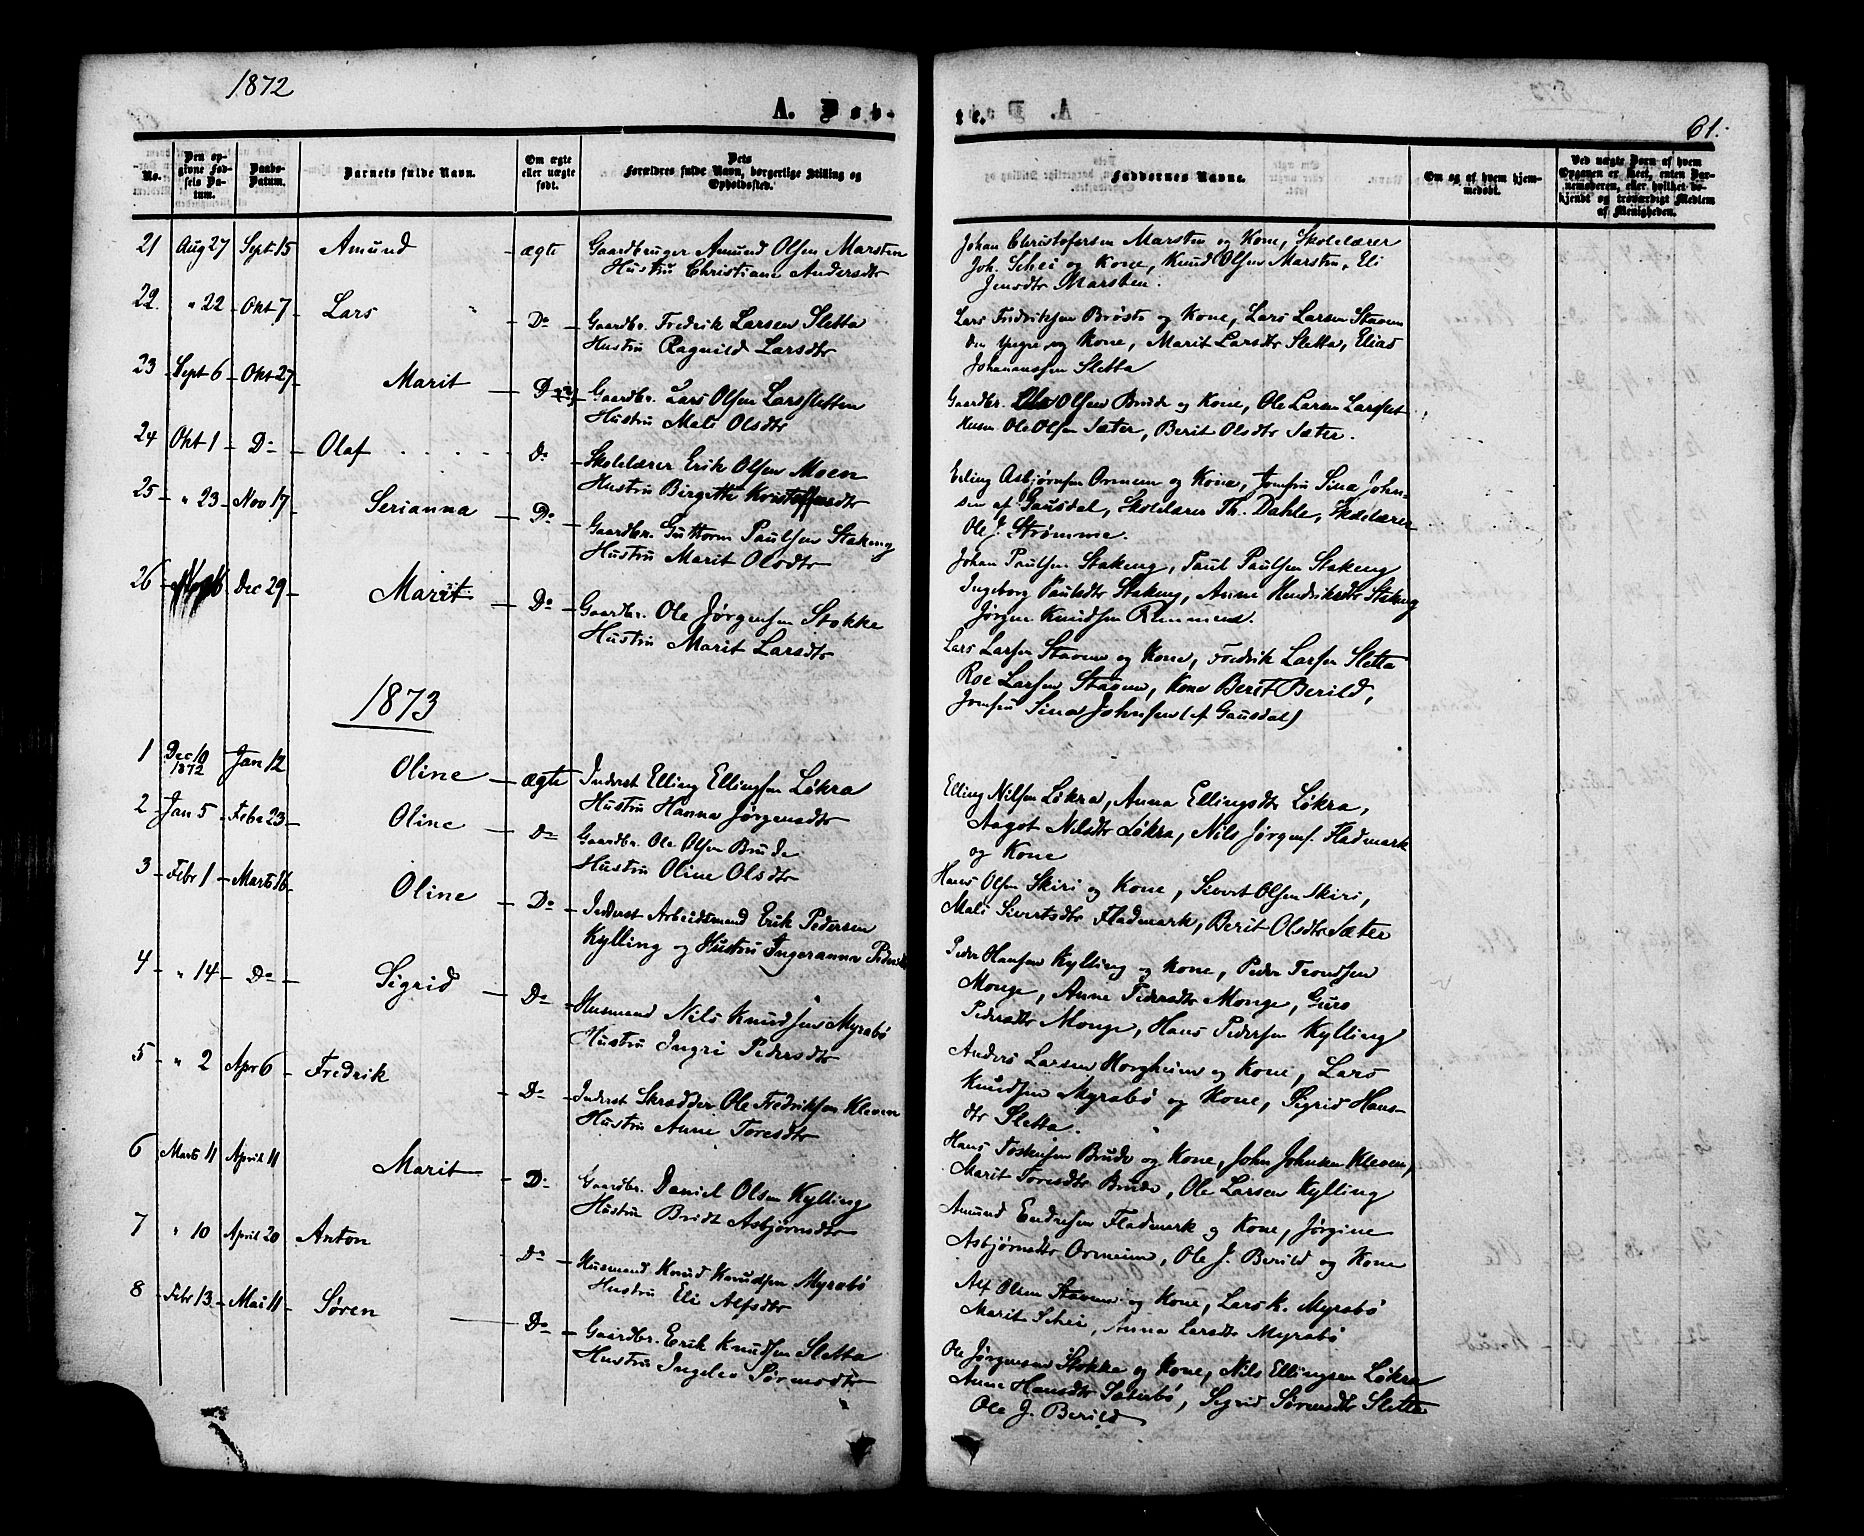 1872
A. Døb-
te.
61.
No.
Den opgivne Fødsels Datum.
Daabs-Datum.
Barnets fulde Navn.
Om ægte eller uægte født.
Dets Forældres fulde Navn, borgerlige Stilling og Opholdssted.
Faddernes Navne.
Om og af hvem hjemmedøbt.
Ved uægte Børn af hvem Opgaven er skeet, enten Barnemoderen, eller hvilket bekjendt og troværdigt Medlem af Menigheden.
21 Aug 27 Sept 15 Amund ægte Gaardbruger Amund Olsen Marsten
Hustru Christiane Andersdtr
Johan Christofersen Marsten og Kone, Skolelærer
Joh. Schei og Kone, Knud Olsen Marsten, Eli
Jensdtr Marsten.
22. " 22 Okt 7 Lars Do Gaardbr. Fredrik Larsen Sletta
Hustru Ragnild Larsdtr
Lars Fredriksen Brøste og Kone, Lars Larsen Staven
den yngre og Kone, Marit Larsdtr Sletta, Elias
Johanssen Sletta
23 Sept 6 Okt 27 Marit Do Gaardbr. Lars Olsen Larssletten
Hustru Mali Olsdtr
Gaardbr. Ole Olsen Brude og Kone, Ole Larsen Larsslet
Husm Ole Olsen Sæter, Berit Olsdtr Sæter.
24 Okt 1 Do Olaf Do Skolelærer Erik Olsen Moen
Hustru Birgitte Kristoffersdtr
Erling Asbjørnsen Ormem og Kone, Jomfru Sina John-
sen af Gausdal, Skolelærer Th. Dahle, Skolelærer
Ole J. Strømme.
25 " 23 Nov 17 Serianna Do Gaardbr. Guttorm Paulsen Stakeng
Hustru Marit Olsdtr
Johan Paulsen Stakeng, Paul Paulsen Stakeng
Ingeborg Paulsdtr Stakeng, Anne Hendriksdtr Stakeng
Jørgen Knudsen Remmem.
26 Dec 29 Marit Do Gaardbr. Ole Jørgensen Stokke
Hustru Marit Larsdtr
Lars Larsen Staven og Kone, Fredrik Larsen Sletta
Roe Larsen Staven, Kone Berit Berild,
Jomfru Sina Johnsen (af Gausdal)
1873
1 Dec 10 1872 Jan 12 Oline ægte Inderst Elling Ellingsen Løkra
Hustru Hanna Jørgensdtr
Elling Nilsen Løkra, Anna Ellingsdtr Løkra,
Aagot Nilsdtr Løkra, Nils Jørgens. Fladmark
og Kone
2 Jan 5 Febr 23 Oline Do Gaardbr. Ole Olsen Brude
Hustru Oline Olsdtr
Hans Olsen Skiri og Kone, Sivert Olsen Skiri,
Mali Sivertsdtr Fladmark, Berit Olsdtr Sæter
3 Febr 1 Marts 16 Oline Do Inderst Arbeidsmand Erik Pedersen
Kylling og Hustru Ingeranna Pedersdtr
Peder Hansen Kylling og Kone, Peder Trondsen
Monge, Anne Pedersdtr Monge, Guro
Pedersdtr Monge, Hans Pedersen Kylling
4 " 14 Do Sigrid Do Husmand Nils Knudsen Myrabø
Hustru Ingri Pedersdtr
Anders Larsen Horgheim og Kone, Lars
Knudsen Myrabø og Kone, Sigrid Hans-
dtr Sletta.
5 " 2 Apr 6 Fredrik Do Inderst Skrædder Ole Fredriksen Kleven
Hustru Anne Toresdtr
Hans Tostensen Brude og Kone, John Johnsen Kleven,
Marit Toresdtr Brude, Ole Larsen Kylling
6 Marts 11 April 11 Marit Do Gaardbr. Daniel Olsen Kylling
Hustru Bridt Asbjørnsdtr
Amund Endresen Fladmark og Kone, Jørgine
Asbjørnsdtr Ormeim, Ole J. Berild og Kone
7 " 10 April 20 Anton Do Husmand Knud Knudsen Myrabø
Hustru Eli Alfsdtr
Alf Olsen Staven og Kone, Lars K. Myrabø
Marit Schei, Anna Larsdtr Myrabø
8 Febr 13 Mai 11 Søren Do Gaardbr. Erik Knudsen Sletta
Hustru Ingeleo Sørensdtr
Ole Jørgensen Stokke og Kone, Nils Ellingsen Løkra
Anne Hansdtr Sæterbø, Sigrid Sørensdtr Sletta
Ole J. Berild